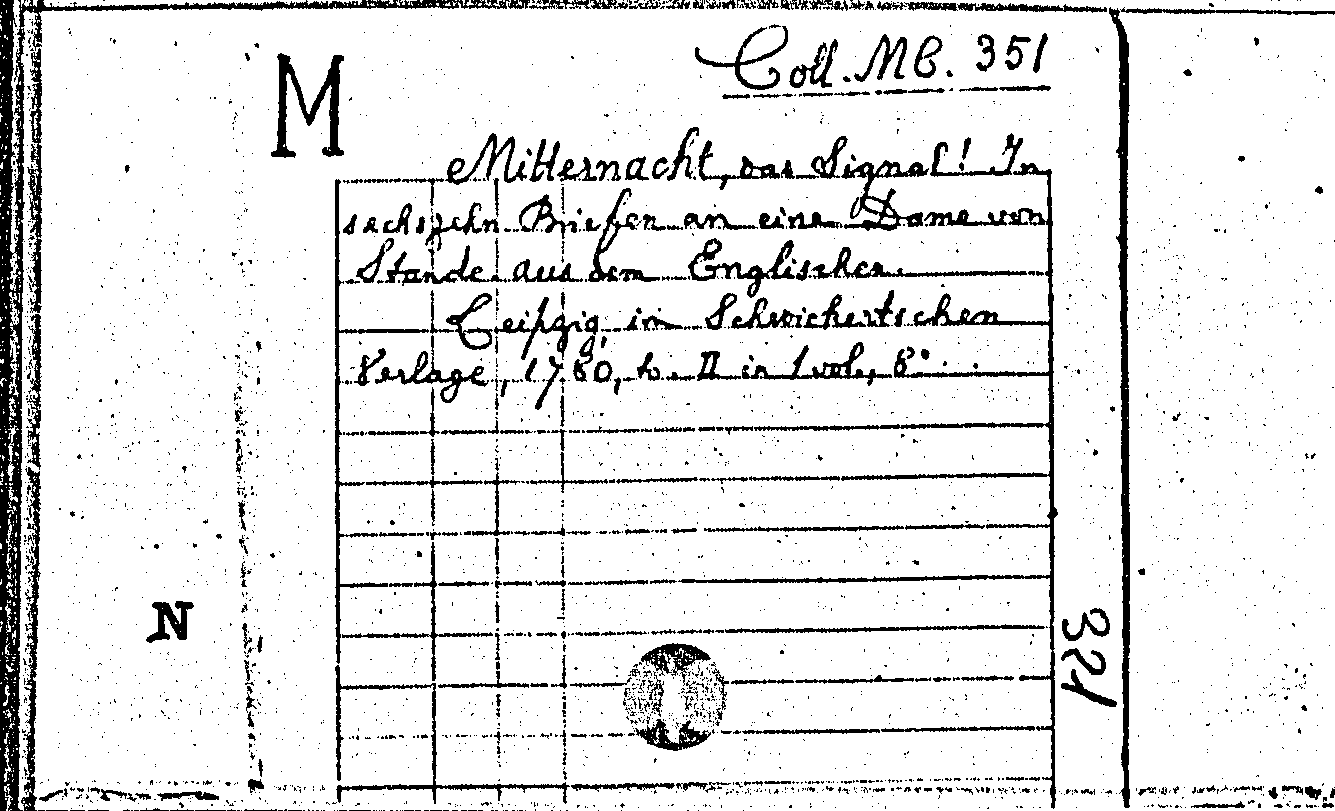 Coll. MC. 351
M
Mitternacht, das Signal! In
sechszehn Briefen an eine Dame von
Stande aus dem Englischen.
Leipzig, im Schwickertschen
Verlage, 1780, t. II in 1 vol., 8°.
N
321